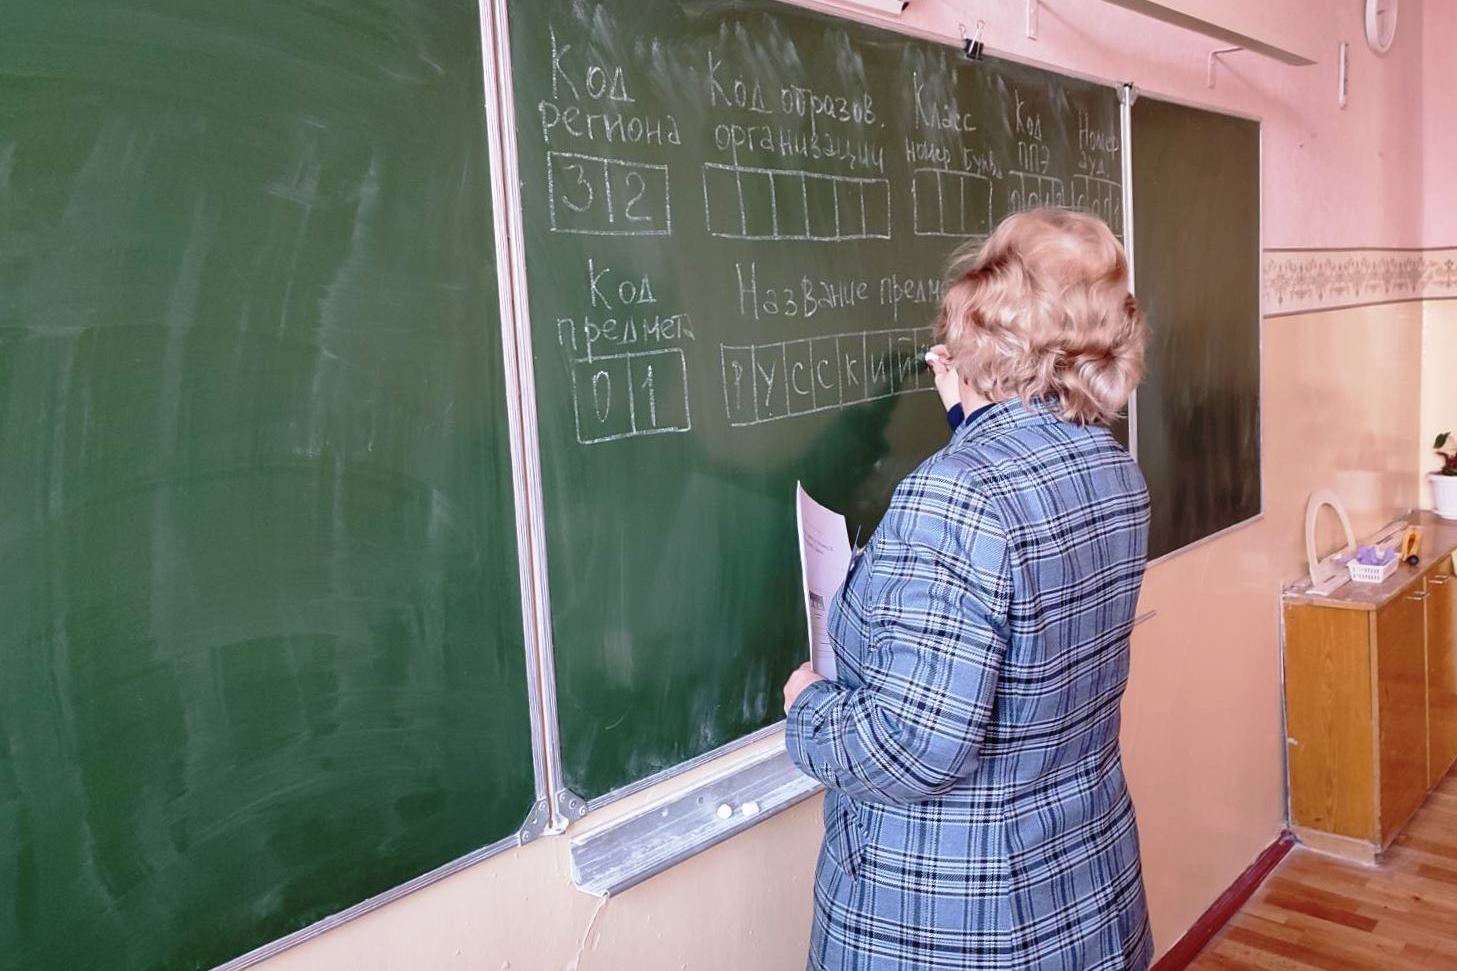 Код
региона
32
Код образов.
организации
Класс
номер букв.
Код
ППЭ
Номер
ауд.
Код
предмета
01
Название
русский